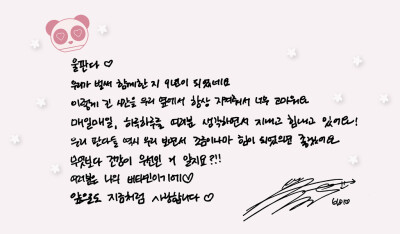 울판다 ♡
우리가 벌써 함께한 지 9년이 되었네요
이렇게 긴 시간을 우리 옆에서 항상 지켜줘서 너무 고마워요
매일매일, 하루하루를 여러분 생각하면서 지내고 힘내고 있어요!
우리 판다들 역시 우리 보면서 조금이나마 힘이 되었으면 좋겠어요
무엇보다 건강이 우선인 거 알지요?!!
여러분은 나의 비타민이기에♡
앞으로도 지금처럼 사랑합니다♡